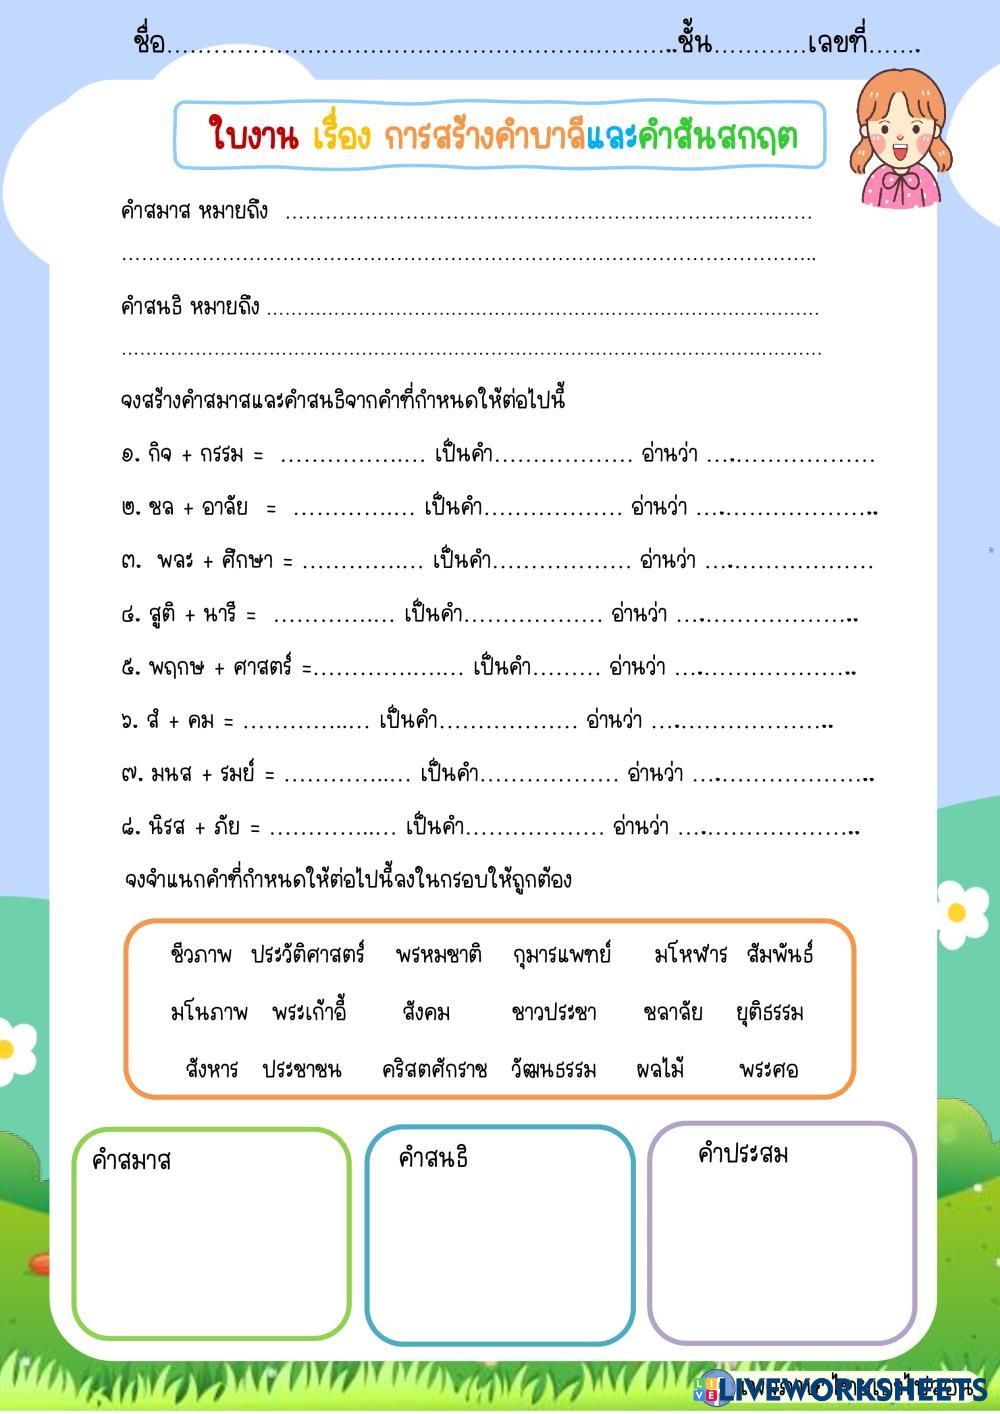 ชื่อ……………………………………………………………..ชั้น…………เลขที่…….
ใบงาน เรื่อง การสร้างคำบาลีและคำสันสกฤต
คำสมาส หมายถึง ……………………………………………………………………
……………………………………………………………………………………………..
คำสนธิ หมายถึง ………………………………………………………………………
……………………………………………………………………………………………
จงสร้างคำสมาสและคำสนธิจากคำที่กำหนดให้ต่อไปนี้
๑. กิจ + กรรม = ………………… เป็นคำ……………… อ่านว่า …………………
๒. ชล + อาลัย = ……………… เป็นคำ……………… อ่านว่า …………………..
๓. พละ + ศึกษา = ……………… เป็นคำ……………… อ่านว่า …………………
๔. สูติ + นารี = ……………… เป็นคำ……………… อ่านว่า …………………..
๕. พฤกษ + ศาสตร์ =………………… เป็นคำ……… อ่านว่า …………………..
๖. สํ + คม = ……………… เป็นคำ……………… อ่านว่า …………………..
๗. มนส + รมย์ = ……………… เป็นคำ……………… อ่านว่า …………………..
๘. นิรส + ภัย = ……………… เป็นคำ……………… อ่านว่า …………………..
จงจำแนกคำที่กำหนดให้ต่อไปนี้ลงในกรอบให้ถูกต้อง
ชีวภาพ ประวัติศาสตร์ พรหมชาติ กุมารแพทย์ มโหฬาร สัมพันธ์
มโนภาพ พระเก้าอี้ สังคม ชาวประชา ชลาลัย ยุติธรรม
สังหาร ประชาชน คริสตศักราช วัฒนธรรม ผลไม้ พระศอ
คำสมาส คำสนธิ คำประสม
LIVEWORKSHEETS